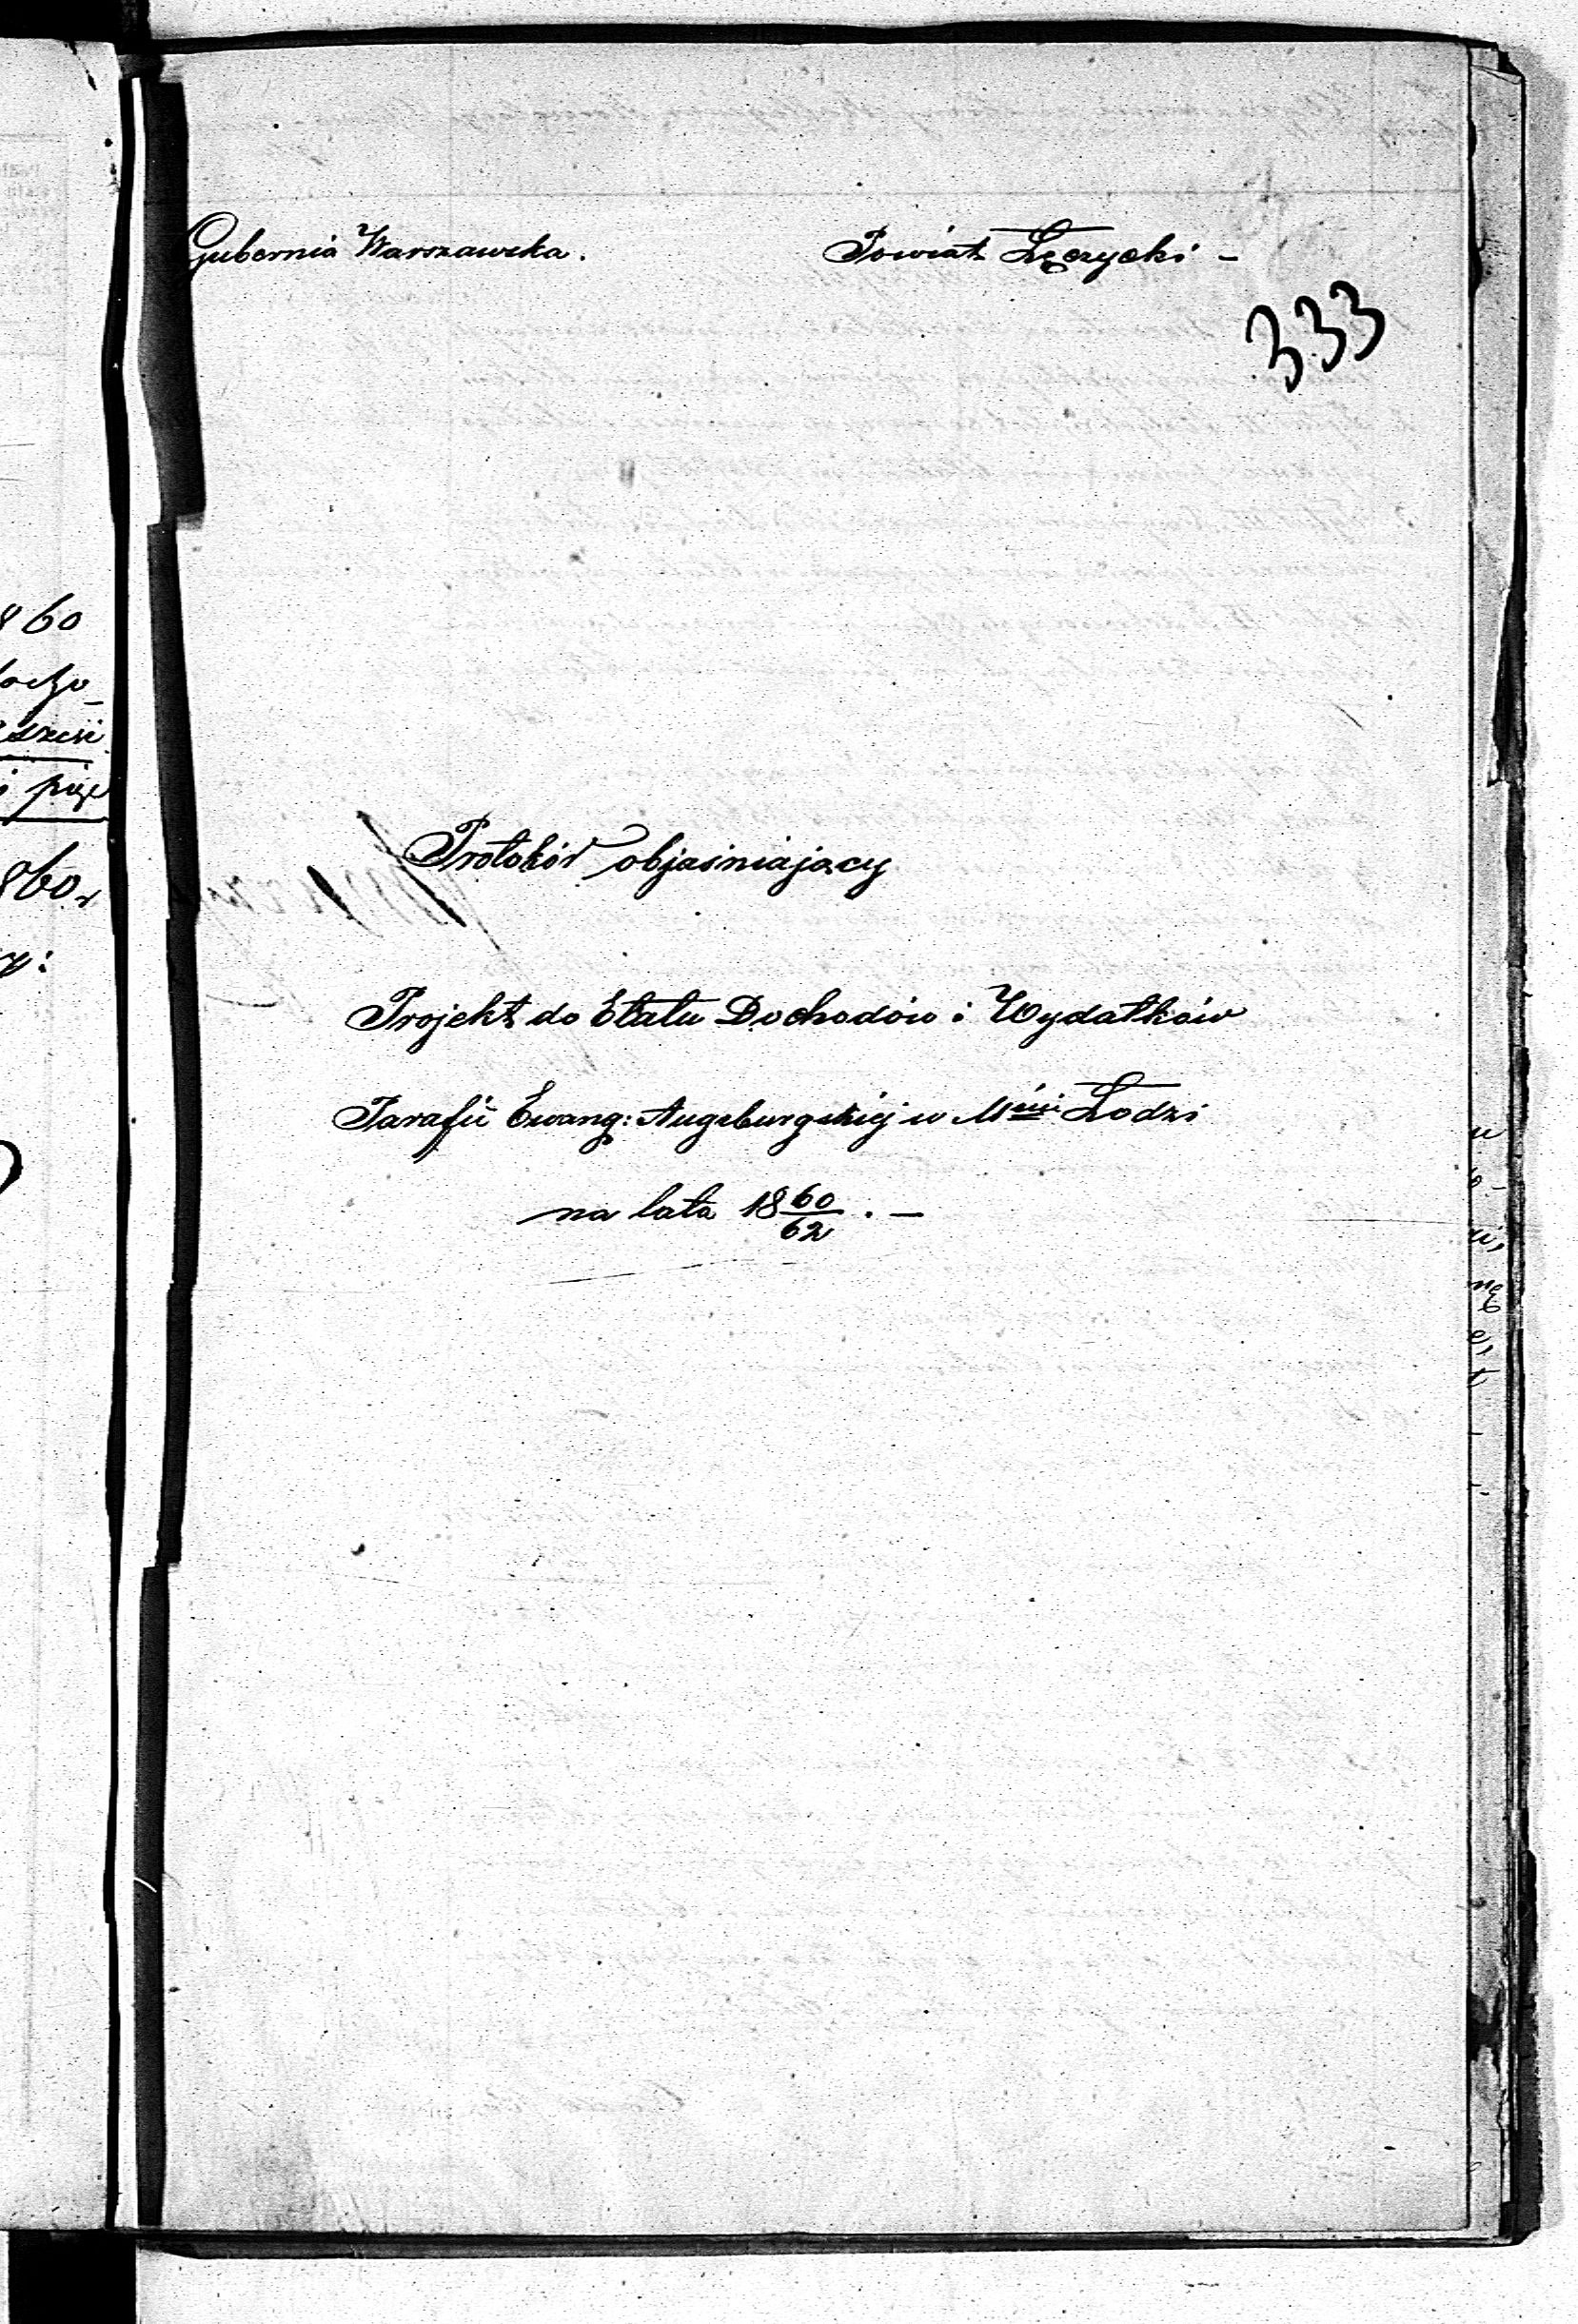 Gubernia Warszawska. Powiat Łęczycki -
333
Protokół objaśniający
Projekt do Etatu Dochodów i Wydatków
Parafii Ewang: Augsburgskiej w Mieście Łodzi
na lata 18 60/62 . -
860
860